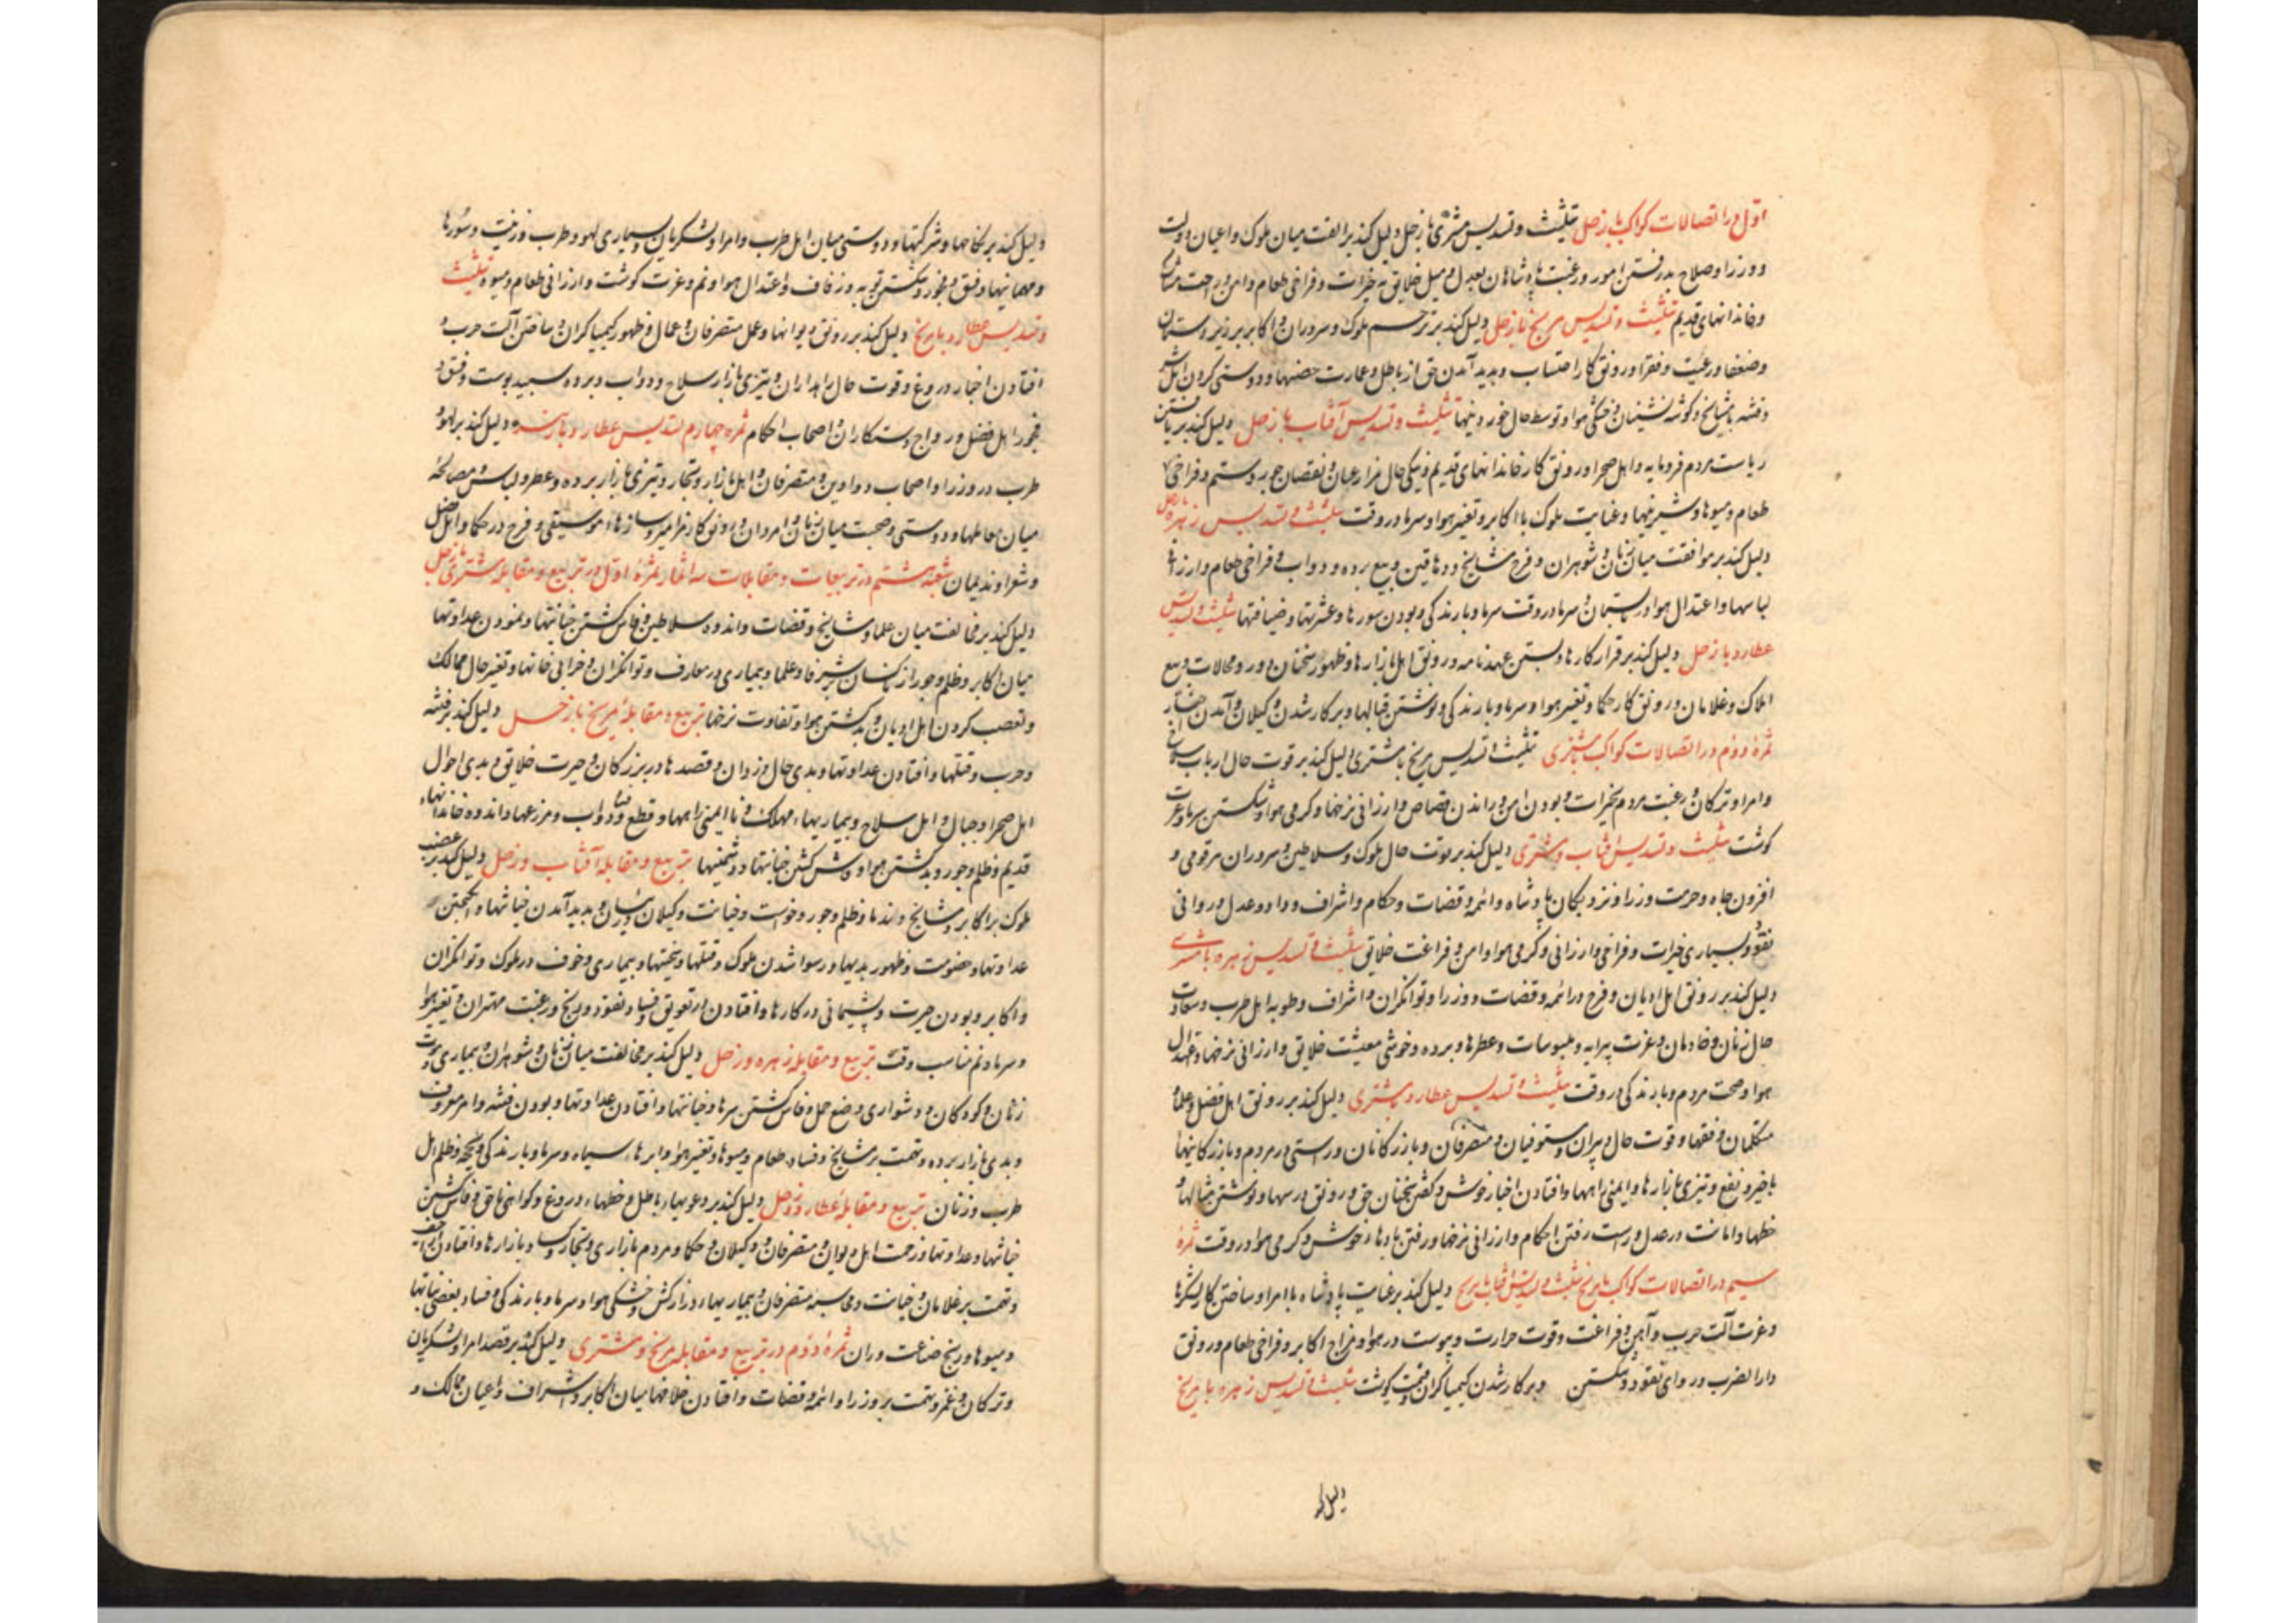 اول در اتصالات کواکب با زحل تثلیث و تسدیس مشتری با زحل دلیل کند بر الفت میان ملوک و اعیان دولت
و وزرا و صلاح پذیرفتن امور و رغبت پادشاهان بعدل و میل خلایق به خیرات و فراخی طعام و امن و راحت مشایخ
و خاندانهای قدیم تثلیث و تسدیس مریخ با زحل دلیل کند بر ترحم ملوک و سروران و اکابر بر زیردستان
و ضعفا و رعیت و فقرا و رونق کار احتساب و پدید آمدن حق از باطل و عمارت حصنها و دوستی کردن اهل شر
و فتنه با مشایخ و گوشه نشینان و خشکی هوا و توسط حال خوردنیها تثلیث و تسدیس آفتاب با زحل دلیل کند بر یافتن
ریاست مردم فرومایه و اهل صحرا و رونق کار خاندانهای قدیم و نیکی حال مزارعان و نقصان جور و ستم و فراخی
طعام و میوها و شیرینیها و عنایت ملوک با اکابر و تغییر هوا و سرما در وقت تثلیث و تسدیس زهره با زحل
دلیل کند بر موافقت میان زنان و شوهران و فرح مشایخ و دهاقین و بیع برده و دواب و فراخی طعام و ارزانی
لباسها و اعتدال هوا در تابستان و سرما در وقت سرما و بارندگی و بودن سورها و عشرتها و ضیافتها تثلیث و تسدیس
عطارد با زحل دلیل کند بر قرار کارها و بستن عهدنامه و رونق اهل بازارها و ظهور سخنان دور و محالات و بیع
املاک و غلامان و رونق کار حکما و تغییر هوا و سرما و بارندگی و نوشتن قبالها و بر کار شدن وکیلان و آمدن
ثمره دوم در اتصالات کواکب با مشتری تثلیث و تسدیس مریخ با مشتری دلیل کند بر قوت حال ارباب
و امرا و ترکان و رغبت مردم بخیرات و بودن امن و راندن قصاص و ارزانی نرخها و گرمی هوا و شکستن سرما و عزت
گوشت تثلیث و تسدیس آفتاب و مشتری دلیل کند بر قوت حال ملوک و سلاطین و سروران هر قومی و
افزون جاه و حرمت وزرا و نزدیکان پادشاه و ائمه و قضات و حکام و اشراف و داد و عدل و روانی
نقود و بسیاری خیرات و فراخی و ارزانی و گرمی هوا و امن و فراغت خلایق تثلیث و تسدیس زهره با مشتری
دلیل کند بر رونق اهل ادیان و فرح در ائمه و قضات و وزرا و توانگران و اشراف و اهل طرب و سعادت
حال زنان و خادمان و عزت پیرایه و ملبوسات و عطرها و برده و خوشی معیشت خلایق و ارزانی نرخها و اعتدال
هوا و صحت مردم و بارندگی در وقت تثلیث و تسدیس عطارد و مشتری دلیل کند بر رونق اهل فضل و علما و
متکلمان و فقها و قوت حال دبیران و مستوفیان و متصرفان و بازرگانان و راستی در مردم و بازرگانیها
با خیر و نفع و تیزی بازارها و ایمنی راهها و افتادن اخبار خوش و گفتن سخنان حق و رونق درسها و نوشتن مثالها و
خطها و امانت و عدل و راست رفتن احکام و ارزانی نرخها و رفتن بادها خوش و گرمی هوا در وقت ثمره
سیم در اتصالات کواکب با مریخ تثلیث و تسدیس آفتاب با مریخ دلیل کند بر عنایت پادشاه با امرا و ساختن کار لشکرها
و عزت آلت حرب و آهن و فراغت و قوت حرارت و یبوست در هوا و مزاج اکابر و فراخی طعام و رونق
دار الضرب و روای نقود و شکستن و بر کار شدن کیمیاگران و قیمت گوشت تثلیث و تسدیس زهره با مریخ
دلیل کند
دلیل کند بر نکاحها و شرکتها و دوستی میان اهل طرب و امرا و لشکریان و بسیاری لهو و طرب و زینت و سورها
و مهمانیها و فسق و فجور و شکستن توبه و زفاف و اعتدال هوا و نم و عزت گوشت و ارزانی طعام و میوه تثلیث
و تسدیس عطارد با مریخ دلیل کند بر رونق دیوانها و عمل متصرفان و عمال و ظهور کیمیاگران و ساختن آلت حرب و
افتادن اخبار دروغ و قوت حال راهداران و تیزی بازار سلاح و دواب و برده سپید پوست و فسق و
فجور اهل فضل و رواج دستکاران و اصحاب احکام ثمره چهارم تسدیس عطارد با زهره دلیل کند بر لهو و
طرب در وزرا و اصحاب دواوین و متصرفان و اهل بازار و تجار و تیزی بازار برده و عطر و لباس و مصالحه
میان عاملها و دوستی و صحبت میان زنان و امردان و رونق کار مزامیر و سازهاء موسیقی و فرح در حکما و اهل فضل
و شعرا و ندیمان شعبه هشتم در تربیعات و مقابلات سه اثمار ثمره اول در تربیع و مقابله مشتری با زحل
دلیل کند بر مخالفت میان علما و مشایخ و قضات و اندوه سلاطین و فاش گشتن خیانتها و نمودن عداوتها
میان اکابر و ظلم و جور از کسان شرفا و علما و بیماری در معارف و توانگران و خرابی خانها و تغییر حال ممالک
و تعصب کردن اهل ادیان و بد گشتن هوا و تفاوت نرخها تربیع و مقابله مریخ با زحل دلیل کند بر فتنه
و حرب و قتلها و افتادن عداوتها و بدی حال دزدان و قصدها در بزرگان و حیرت خلایق و بدی احوال
اهل صحرا و جبال و اهل سلاح و بیماریهاء مهلک و نا ایمنی راهها و قطع و فنا دواب و مزرعها و اندوه خاندانهاء
قدیم و ظلم و جور و بد گشتن هوا و فاش گشتن خیانتها و دشمنیها تربیع و مقابله آفتاب و زحل دلیل کند بر غضب
ملوک بر اکابر و مشایخ و ایذا و ظلم و جور و خواست و خیانت وکیلان ایشان و پدید آمدن خیانتها و انگیختن
عداوتها و خصومت و ظهور بدیها و رسوا شدن ملوک و قتلها و سختیها و بیماری و خوف در ملوک و توانگران
و اکابر و بودن حیرت و پشیمانی در کارها و افتادن در تعویق و فساد نقود و رنج و رغبت مهتران و تغییر هوا
و سرما و نم مناسب وقت تربیع و مقابله زهره و زحل دلیل کند بر مخالفت میان زنان و شوهران و بیماری و موت
زنان و کودکان و دشواری وضع حمل و فاش گشتن سرها و خیانتها و افتادن عداوتها و بودن فتنه و امر معروف
و بدی بازار برده و تهمت بر مشایخ و فساد طعام و میوها و تغییر هوا و ابرهاء سیاه و سرما و بارندگی و ظلم اهل
طرب و زنان تربیع و مقابله عطارد و زحل دلیل کند بر دعویهاء باطل و خطهاء دروغ و گواهی ناحق و فاش گشتن
خیانتها و عداوتها و زحمت اهل دیوان و متصرفان و وکیلان و حکما و مردم بازاری و تجار و کساد بازارها و افتادن
و تهمت بر غلامان و خیانت و محاسبه متصرفان و بیماریهاء درازکش و خشکی هوا و سرما و بارندگی و فساد بعضی نباتها
و میوها و رنج صناعت وران ثمره دوم در تربیع و مقابله مریخ و مشتری دلیل کند بر قصد امرا و لشکریان
و ترکان و غمز و تهمت بر وزرا و ائمه و قضات و افتادن خلافها میان اکابر و اشراف و اعیان ممالک و